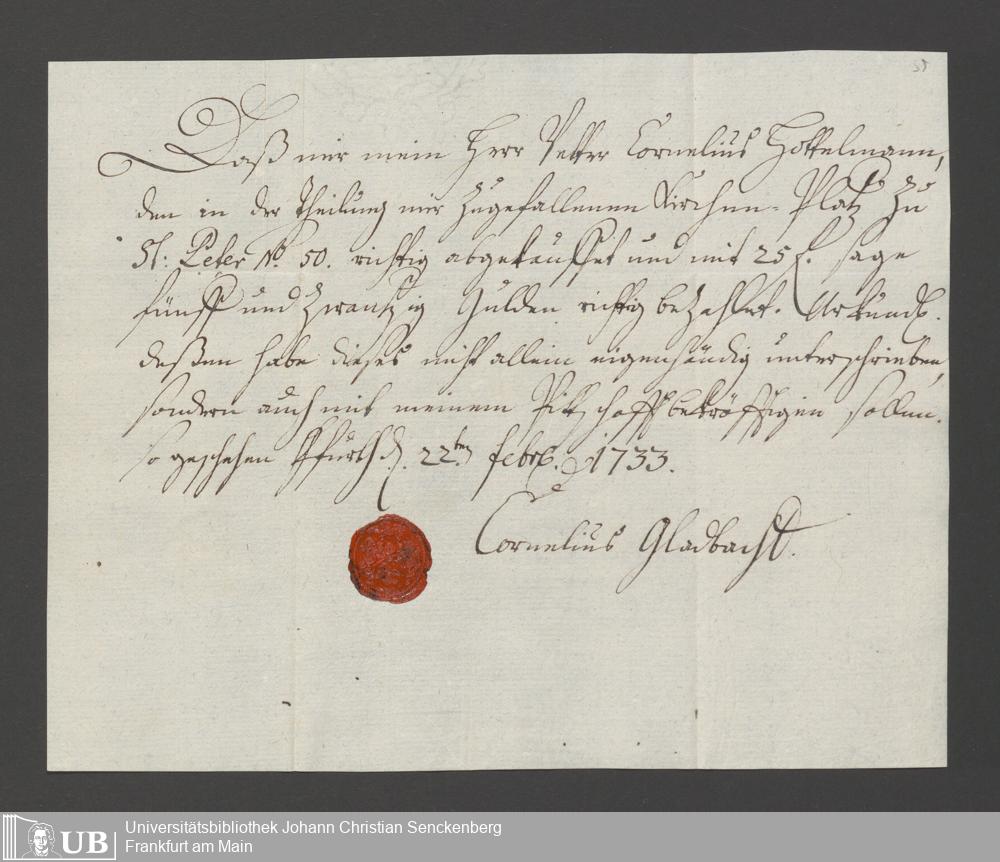 55
Daß mir mein Herr Vetter Cornelius Hoffelmann,
den in der Theilung mir zugefallenen Kirchen-Platz zu
St: Peter No. 50. richtig abgekauffet und mit 25 f. sage
fünff und zwantzig Gulden richtig bezahlet. Urkundl.
deßen habe dieses nicht allein eigenhändig unterschrieben,
sondern auch mit meinem Pittschafft bekräfftigen sollen.
so geschehen Ffurth d. 22ten febr. 1733.
Cornelius Gladbach
UB
Universitätsbibliothek Johann Christian Senckenberg
Frankfurt am Main